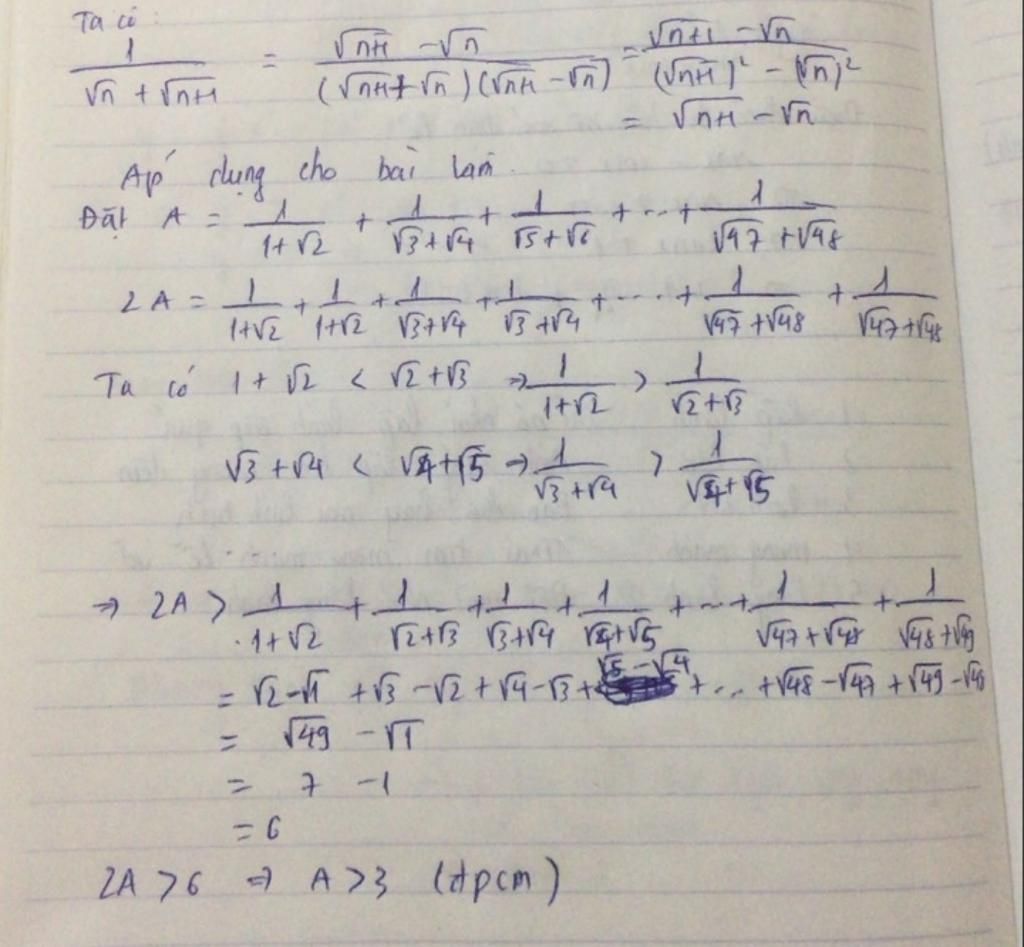 Ta có:
1/(√n + √n+1) = (√n+1 - √n)/((√n+1 + √n)(√n+1 - √n)) = (√n+1 - √n)/((√n+1)² - (√n)²)
= √n+1 - √n
Áp dụng cho bài làm.
Đặt A = 1/(1+√2) + 1/(√3+√4) + 1/(√5+√6) + ... + 1/(√47+√48)
2A = 1/(1+√2) + 1/(1+√2) + 1/(√3+√4) + 1/(√3+√4) + ... + 1/(√47+√48) + 1/(√47+√48)
Ta có 1+√2 < √2+√3 ⇒ 1/(1+√2) > 1/(√2+√3)
√3+√4 < √4+√5 ⇒ 1/(√3+√4) > 1/(√4+√5)
⇒ 2A > 1/(1+√2) + 1/(√2+√3) + 1/(√3+√4) + 1/(√4+√5) + ... + 1/(√47+√48) + 1/(√48+√49)
= √2-√1 + √3-√2 + √4-√3 + √5-√4 + ... + √48-√47 + √49-√48
= √49 - √1
= 7 - 1
= 6
2A > 6 ⇒ A > 3 (đpcm)